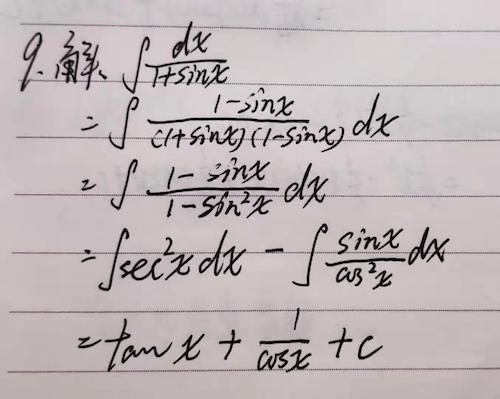 9. 解: ∫ dx/(1+sinx)
= ∫ (1-sinx)/((1+sinx)(1-sinx)) dx
= ∫ (1-sinx)/(1-sin²x) dx
= ∫sec²x dx - ∫ sinx/cos²x dx
= tanx + 1/cosx + c